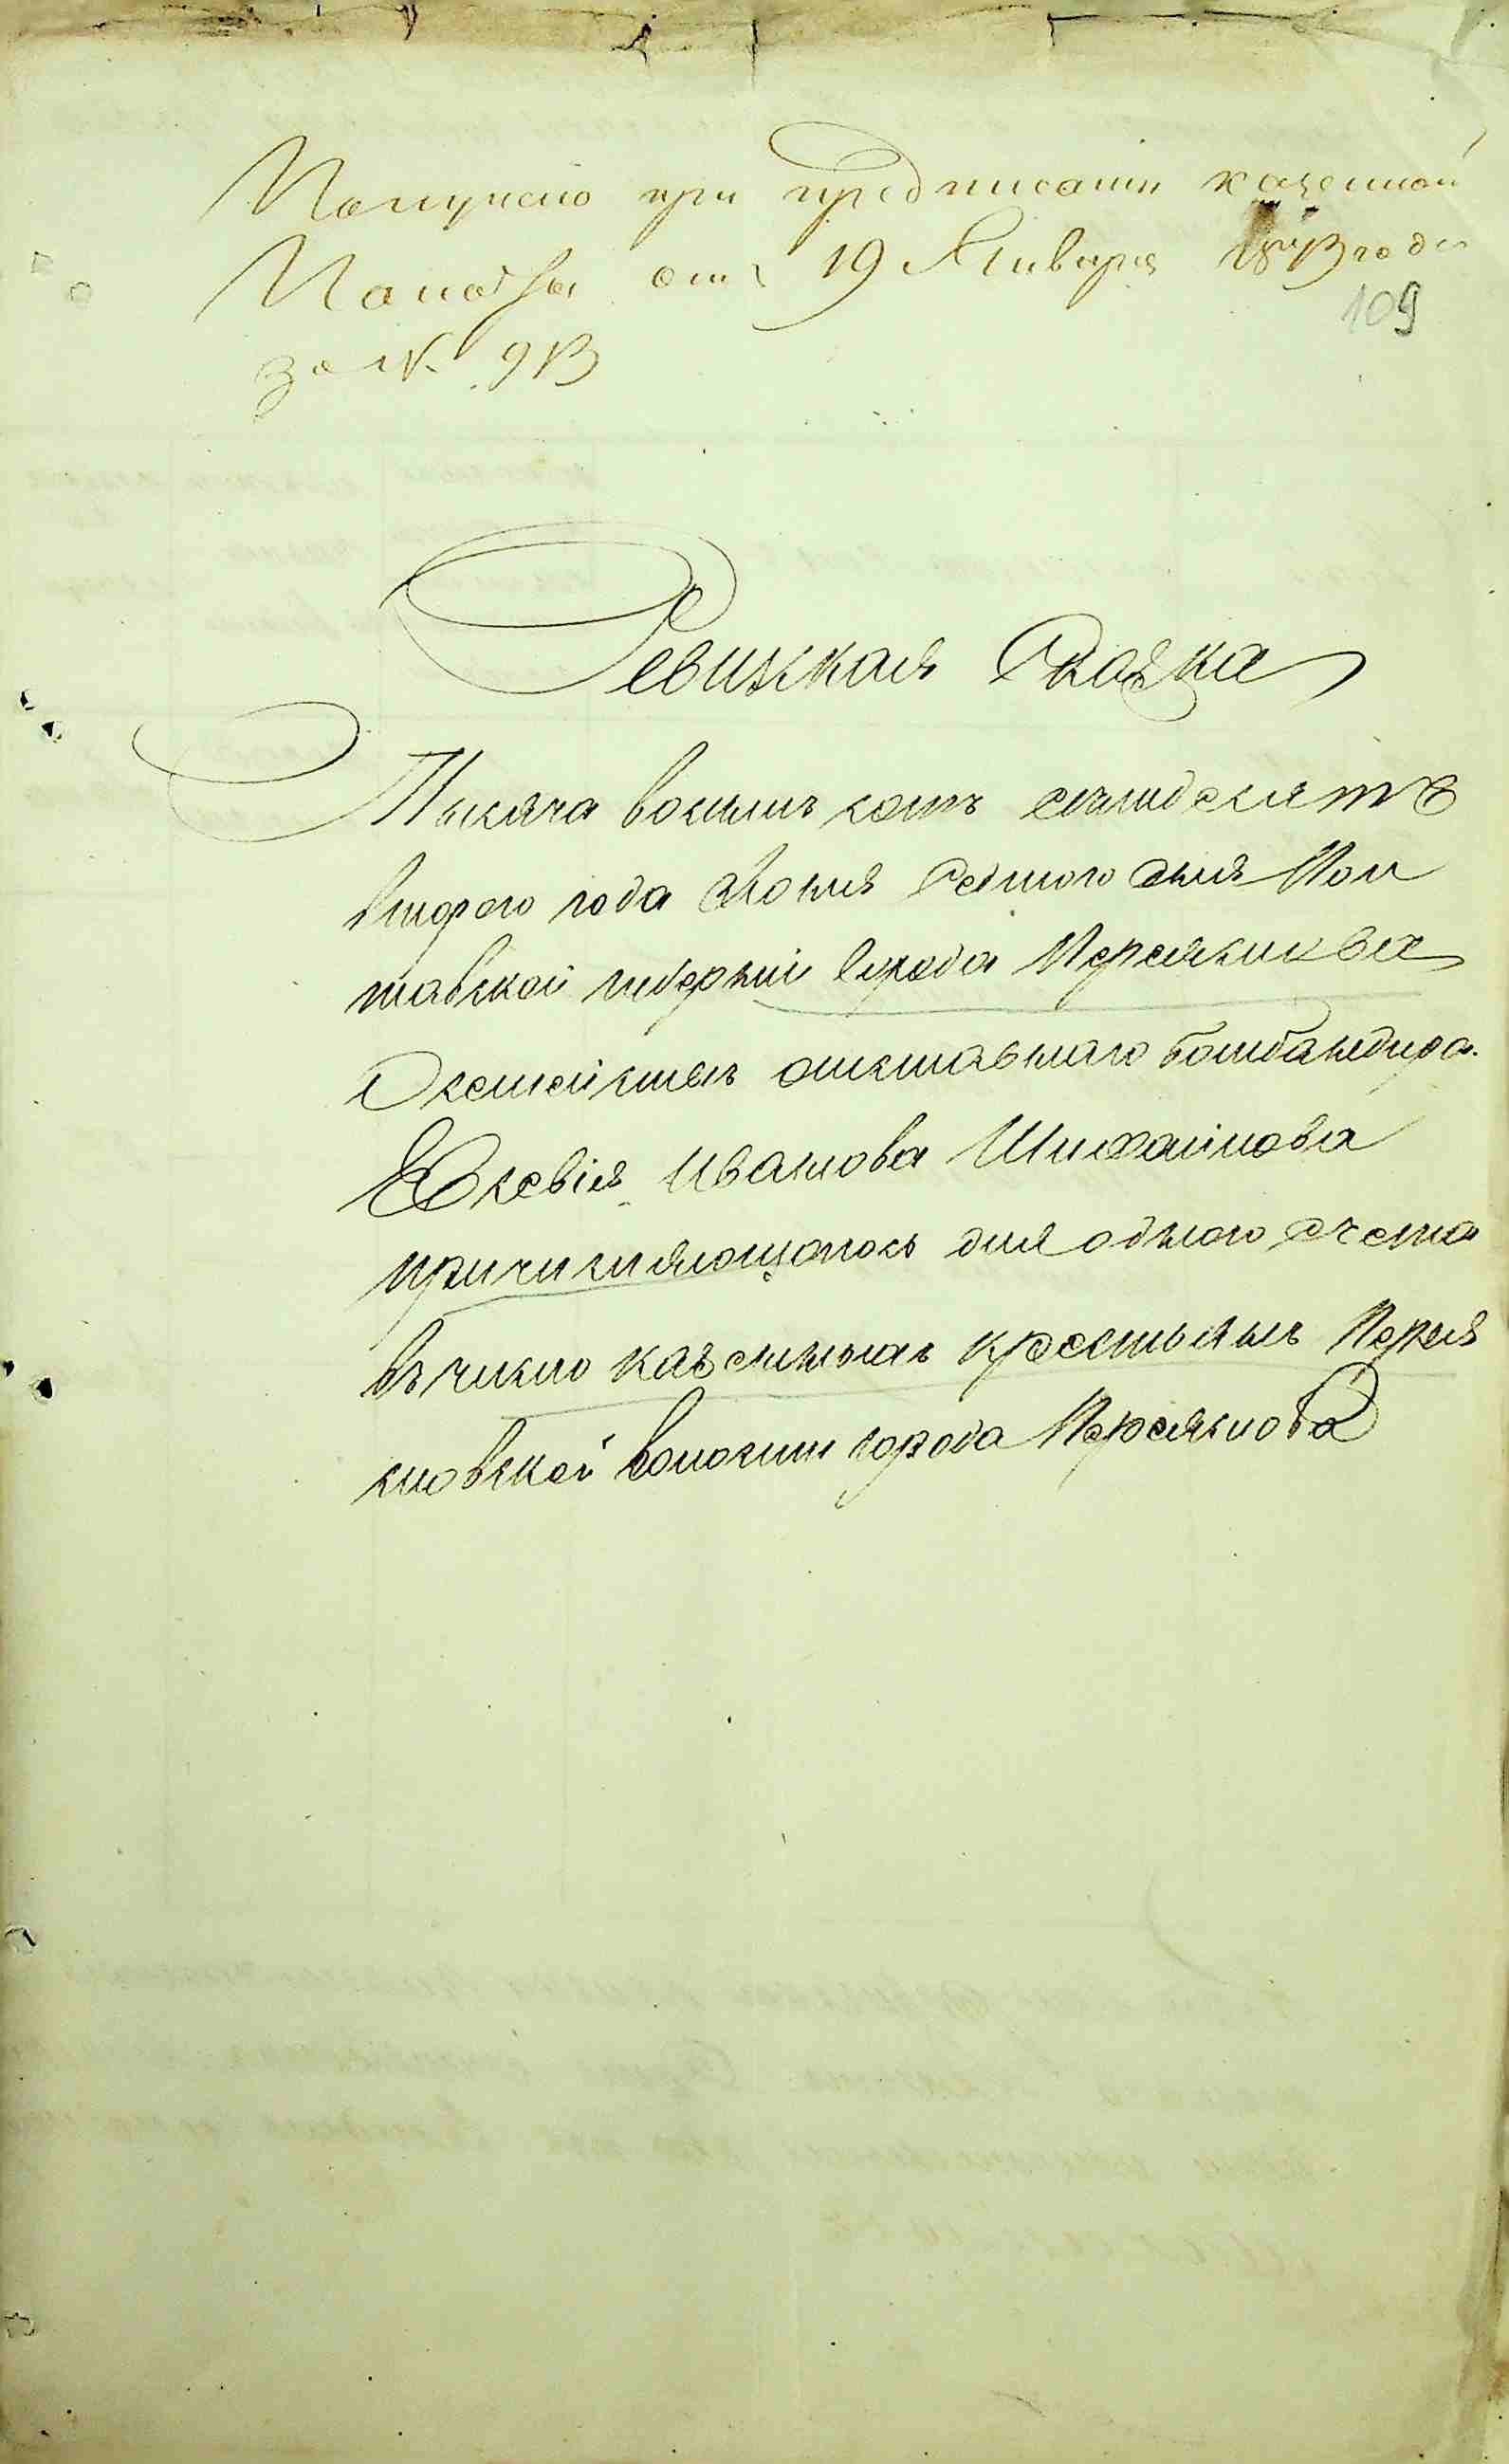 Получено при предписании казенной
Палаты отъ 19 Января 1873 года
за №. 913
109
Ревижкая Сказка
Тысяча восемь сотъ семьдесятъ
втораго года Іюня седмого дня Пол
тавской губерніи города Переяслова
О семействѣ отставнаго бомбандира
Евсевія Иванова Михайлова
причисляющогось для одного счета
въ число казенныхъ крестьянъ Перея
словской волости города Переяслова